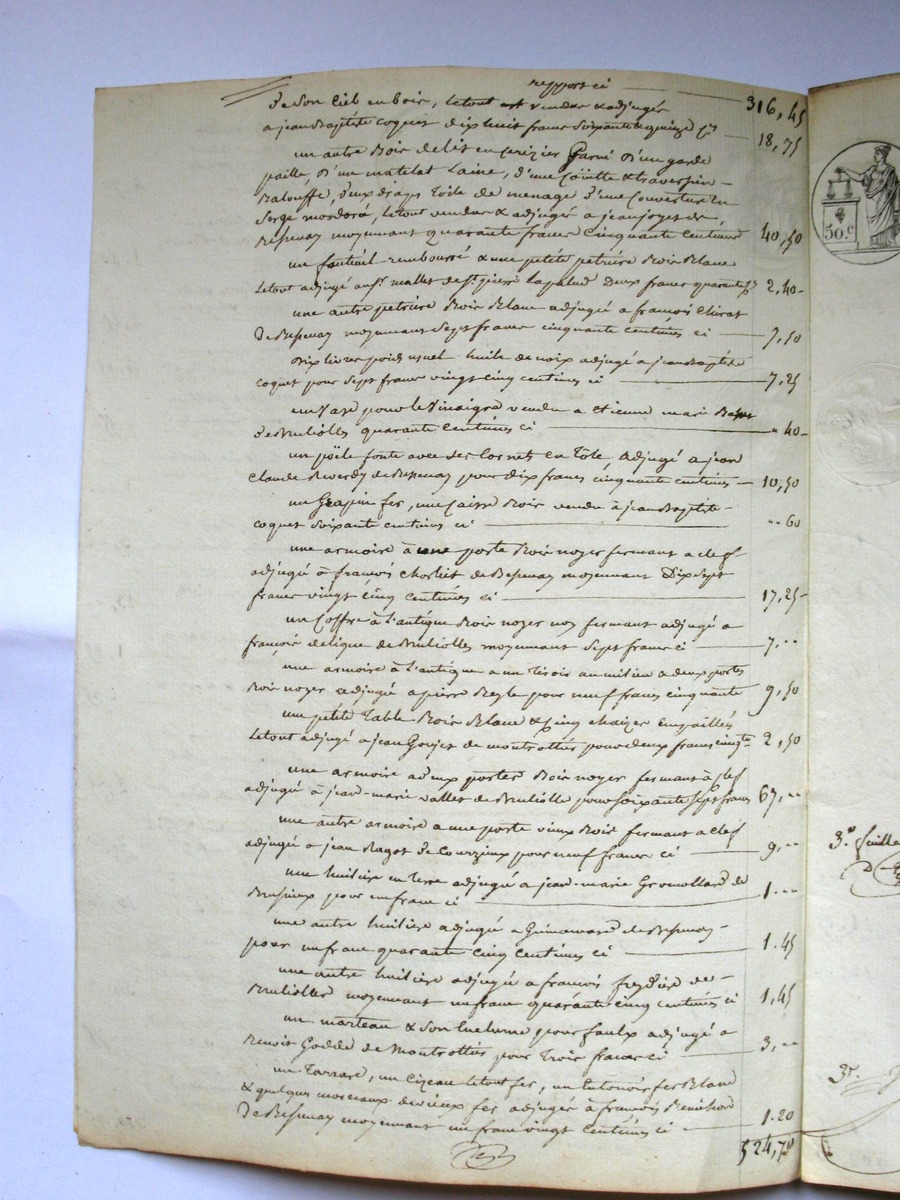 report ci 316,45
de son ciel en bois, le tout vendu & adjugé
a jean Baptiste Coquet dix huit francs soixante & quinze c.es 18,75
un autre Bois de lit en cerizier Garni d'un garde
paille, d'un matelat Laine, d'une Coüitte & traversin
Balouffe, deux draps toile de menage d'une Couverture en
Serge mordoré, le tout vendu & adjugé a jean joyet de
Bessenay moyennant quarante francs cinquante centimes 40,50
un fauteuil rembourré & une petite petriere Bois Blanc
Le tout adjugé au s.r mallet de S.t pierre Lapalud Deux francs quarante c. 2,40
une autre petriere Bois Blanc adjugé a francois Chirat
de Bessenay moyennant Sept francs cinquante centimes ci 7,50
Dix livres poids usuel huile de noix adjugé a jean Baptiste
coquet pour Sept francs vingt cinq centimes ci 7,25
un Vase pour le Vinaigre vendu a Etienne marie
de Brulioles quarante Centimes ci " 40
un poële fonte avec ses Cornets en Tôle, adjugé a jean
Claude Reverdy de Bessenay pour dix francs cinquante centimes 10,50
un Grapin fer, une Caisse Bois vendu à jean Baptiste
coquet Soixante centimes ci " 60
une armoire à une porte Bois noyer fermant a clef
adjugé à francois Chorliet de Bessenay moyennant Dix Sept
francs vingt cinq centimes ci 17,25
un Coffre à L'antique Bois noyer non fermant adjugé a
françois de Brulioles moyennant Sept francs ci 7,"
une armoire à L'antique a un Tiroir au milieu a deux portes
Bois noyer adjugé a pierre Bayle pour neuf francs cinquante 9,50
une petite Table Bois Blanc & cinq chaizes Empaillés
Le tout adjugé a jean Goujet de montrottier pour deux francs cinq.te 2,50
une armoire a deux portes Bois noyer fermant à Clef
adjugé à jean-marie vallet de Brulliolle pour Soixante Sept francs 67,"
une autre armoire a une porte vieux Bois fermant a clef
adjugé a jean Ragot de Courzieux pour neuf francs ci 9,"
une huiliere en terre adjugé a jean-marie Gromollard de
Brussieux pour un franc ci 1,"
une autre huiliere adjugé a de Bessenay
pour un franc quarante cinq centimes ci 1.45
une autre huilière adjugé a francois de
Brulioles moyennant un franc quarante cinq centimes ci 1,45
un marteau & Son Enclume pour faulx adjugé a
Benoit Godde de Montrottier pour Trois francs ci 3,"
un Tarrare, un Cizeau le tout fer, un Entonoir fer Blanc
& quelques morceaux de vieux fer adjugé à francois
de Bessenay moyennant un franc vingt centimes ci 1.20
524,70
50.c
3.e feuille
3.e